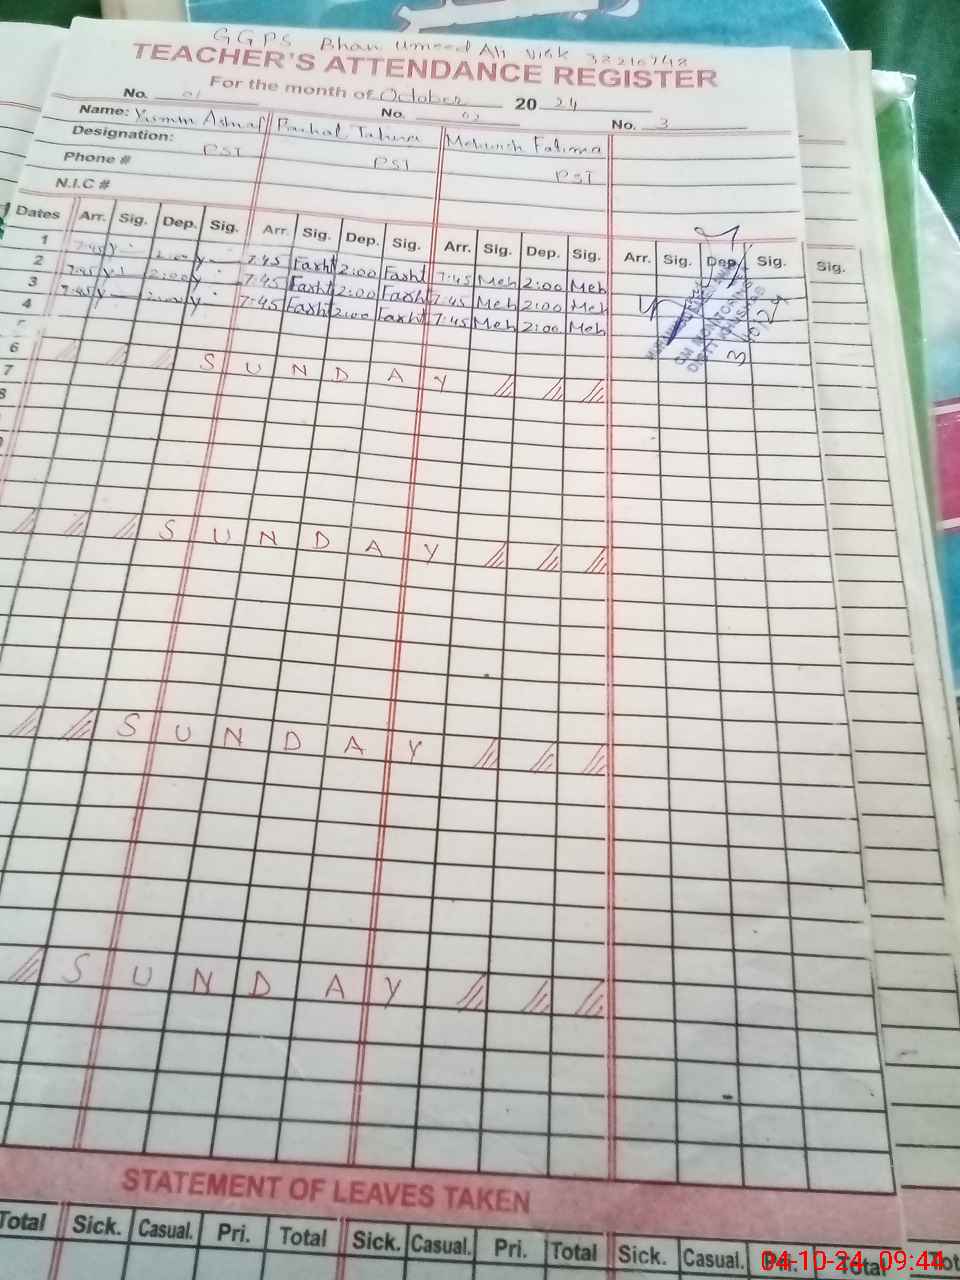 GGPS Bhan Umeed Ali Virk 32210748
TEACHER'S ATTENDANCE REGISTER
For the month of October 20 24
No. 01 No. 02 No. 3
Name: Ashraf Tahira Fatima
Designation: PST PST PST
Phone #
N.I.C #
Dates Arr. Sig. Dep. Sig. Arr. Sig. Dep. Sig. Arr. Sig. Dep. Sig. Arr. Sig. Dep. Sig. Sig.
1 7:45 Y 2:00 Y 7:45 Farht 2:00 Farht 7:45 Meh 2:00 Meh
2 7:45 Y 2:00 Y 7:45 Farht 2:00 Farht 7:45 Meh 2:00 Meh
3 7:45 Y 2:00 Y 7:45 Farht 2:00 Farht 7:45 Meh 2:00 Meh
4
6 SUNDAY
7
8
SUNDAY
SUNDAY
SUNDAY
STATEMENT OF LEAVES TAKEN
Total Sick. Casual. Pri. Total Sick. Casual. Pri. Total Sick. Casual. Pri. Total
04-10-24 09:44